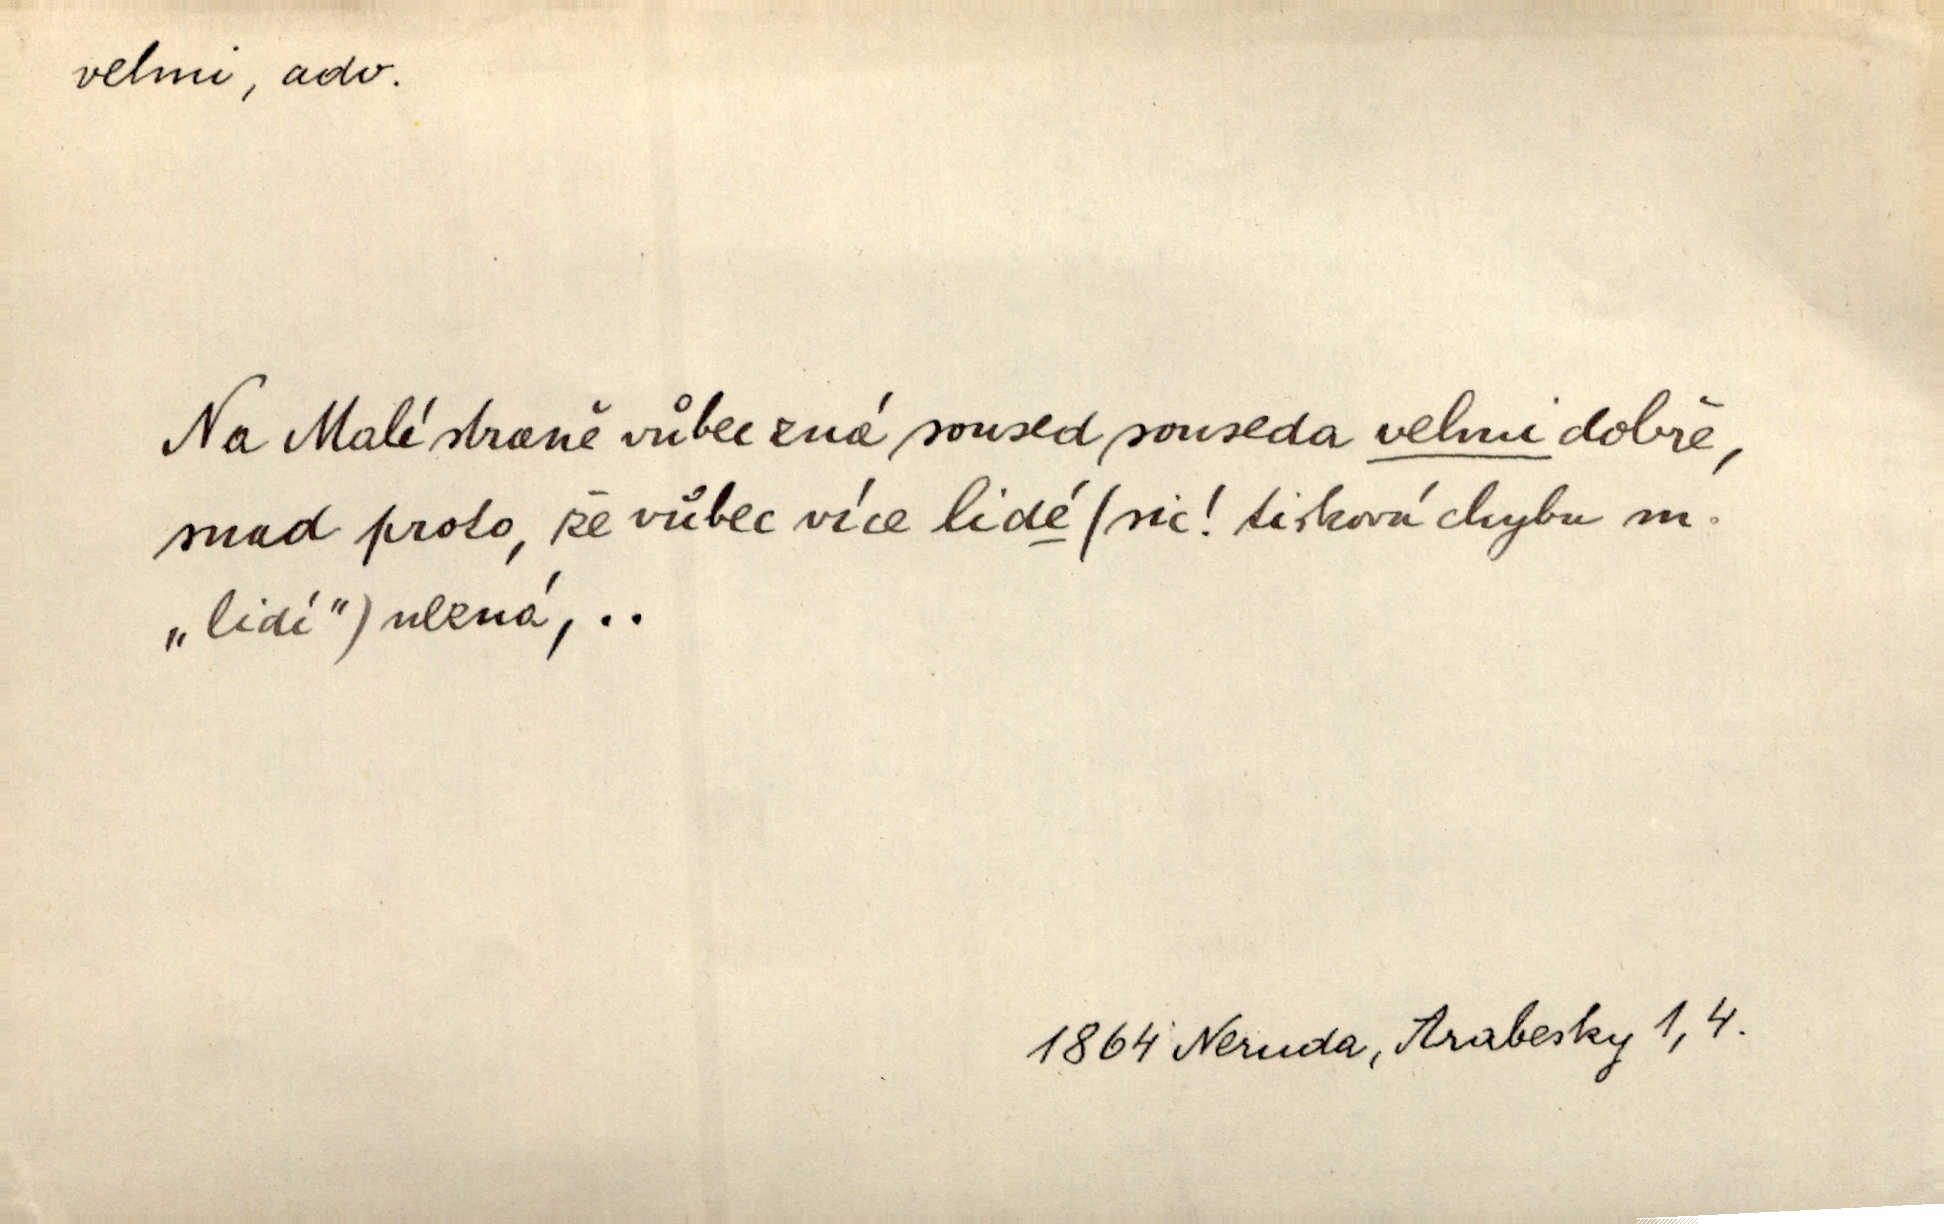 velmi, adv.
Na Malé straně vůbec zná soused souseda velmi dobře,
snad proto, že vůbec více lidé (sic! tisková chyba m.
„lidí“) nezná, ..
1864 Neruda, Arabesky 1, 4.